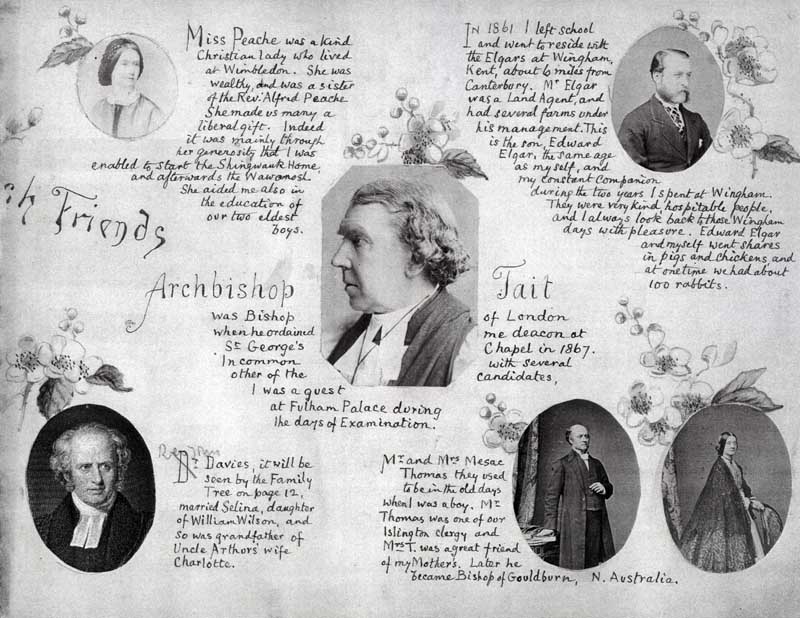 Miss Peache was a kind
Christian lady who lived
at Wimbledon. She was
wealthy, and was a sister
of the Rev. Alfred Peache
She made us many a
liberal gift. Indeed
it was mainly through
her generosity that I was
enabled to start the Shingwauk Home
and afterwards the Wawanosh.
She aided me also in
the education of
our two eldest
boys.
In 1861 I left school
and went to reside with
the Elgars at Wingham,
Kent, about 6 miles from
Canterbury. Mr Elgar
was a Land Agent, and
had several farms under
his management. This
is the son, Edward
Elgar, the same age
as myself, and
my constant companion
during the two years I spent at Wingham.
They were very kind, hospitable people,
and I always look back to those Wingham
days with pleasure. Edward Elgar
and myself went shares
in pigs and chickens, and
at one time we had about
100 rabbits.
Friends
Archbishop Tait
was Bishop of London
when he ordained me deacon at
St George's Chapel in 1867.
In common with several
other of the candidates,
I was a guest
at Fulham Palace during
the days of Examination.
Dr Davies, it will be
seen by the Family
Tree on page 12,
married Selina, daughter
of William Wilson, and
so was grandfather of
Uncle Arthurs' wife
Charlotte.
Mr and Mrs Mesac
Thomas they used
to be in the old days
when I was a boy. Mr
Thomas was one of our
Islington clergy and
Mrs T. was a great friend
of my Mother's. Later he
became Bishop of Gouldburn, N. Australia.